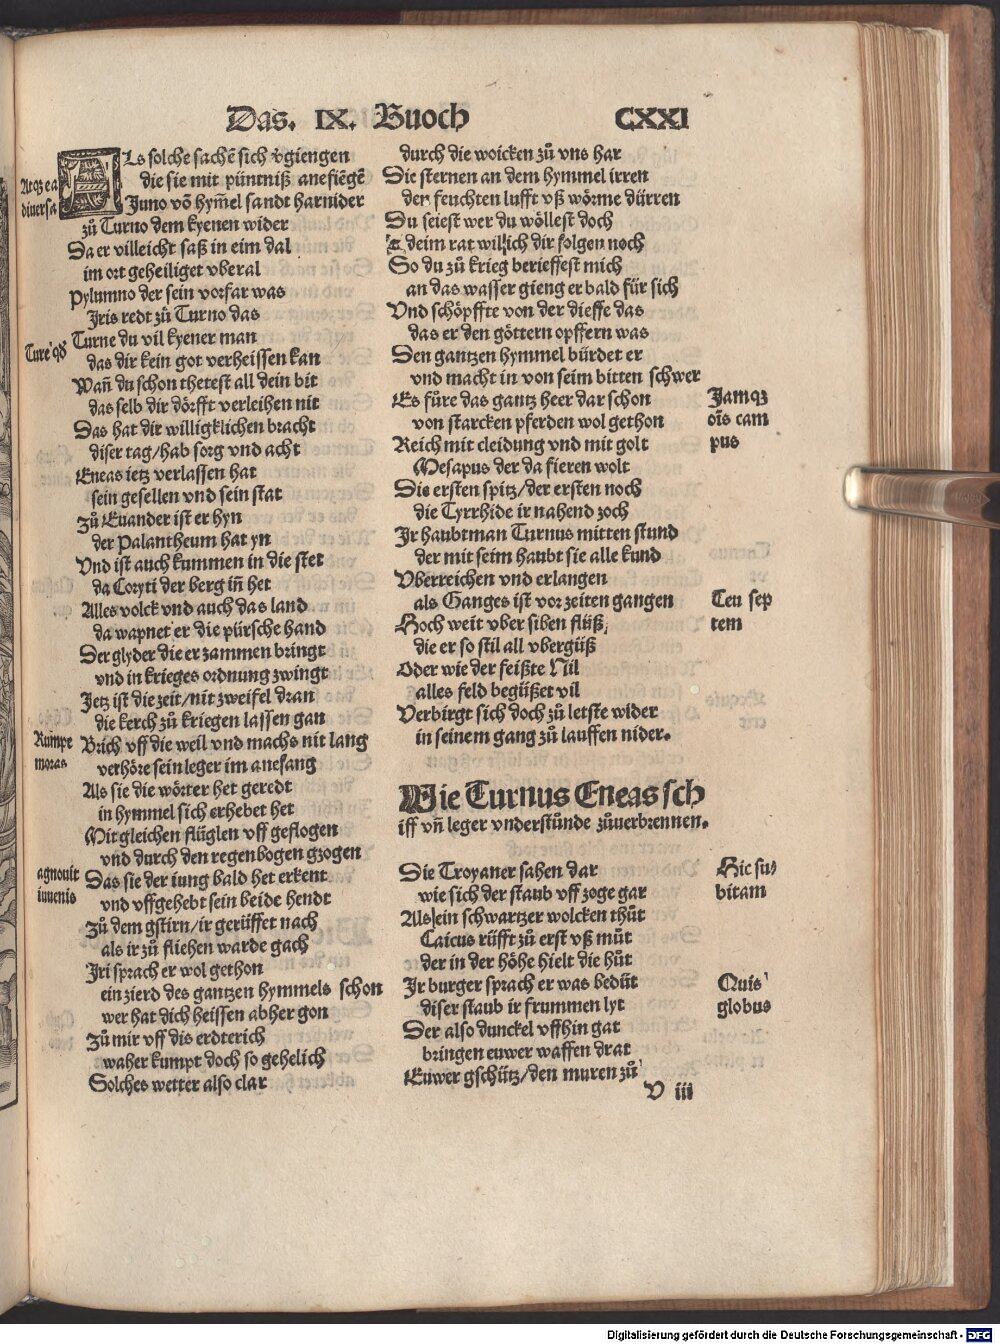 Das. IX. Buoch CXXI
ALs solche sachē sich v̄giengen
die sie mit püntniß anefiēgē
Juno vō hym̄el sandt harnider
zů Turno dem kyenen wider
Da er villeicht saß in eim dal
im ort geheiliget vberal
Pylumno der sein vorfar was
Jris redt zů Turno das
Turne du vil kyener man
das dir kein got verheissen kan
Wan̄ du schon thetest all dein bit
das selb dir dörfft verleihen nit
Das hat dir willigklichen bracht
diser tag/hab sorg vnd acht
Eneas ietz verlassen hat
sein gesellen vnd sein stat
Zů Euander ist er hyn
der Palantheum hat yn
Vnd ist auch kummen in die stet
da Coryti der berg in̄ het
Alles volck vnd auch das land
da wapnet er die pürsche hand
Der glyder die er zammen bringt
vnd in krieges ordnung zwingt
Jetz ist die zeit/nit zweifel dran
die kerch zů kriegen lassen gan
Brich vff die weil vnd machs nit lang
verhöre sein leger im anefang
Als sie die wörter het geredt
in hymmel sich erhebet het
Mit gleichen flüglen vff geflogen
vnd durch den regenbogen gzogen
Das sie der iung bald het erkent
vnd vffgehebt sein beide hendt
Zů dem gstirn/ir gerüffet nach
als ir zů fliehen warde gach
Jri sprach er wol gethon
ein zierd des gantzen hymmels schon
wer hat dich heissen abher gon
Zů mir vff dis erdterich
waher kumpt doch so gehelich
Solches wetter also clar
Atqȝ ea
diuersa
Rumpe
moras
agnouit
iuuenis
durch die wolcken zů vns har
Die sternen an dem hymmel irren
der feuchten lufft vß wörme dürren
Du seiest wer du wöllest doch
deim rat will ich dir folgen noch
So du zů krieg berieffest mich
an das wasser gieng er bald für sich
Vnd schöpffte von der dieffe das
das er den göttern opffern was
Den gantzen hymmel bürdet er
vnd macht in von seim bitten schwer
Es füre das gantz heer dar schon
von starcken pferden wol gethon
Reich mit cleidung vnd mit golt
Mesapus der da fieren wolt
Die ersten spitz/der ersten noch
die Tyrrhide ir nahend zoch
Jr haubtman Turnus mitten stund
der mit seim haubt sie alle kund
Vberreichen vnd erlangen
als Ganges ist vor zeiten gangen
Hoch weit vber siben flüß
die er so stil all vbergüß
Oder wie der feißte Nil
alles feld begüßet vil
Verbirgt sich doch zů letste wider
in seinem gang zů lauffen nider.
Jamqȝ
oīs cam
pus
Teu sep
tem
Wie Turnus Eneas sch
iff vn̄ leger vnderstünde zůuerbrennen.
Die Troyaner sahen dar
wie sich der staub vff zoge gar
Als ein schwartzer wolcken thůt
Caicus rüfft zů erst vß můt
der in der höhe hielt die hůt
Jr burger sprach er was bedüt
diser staub ir frummen lyt
Der also dunckel vffhin gat
bringen euwer waffen drat
Euwer gschütz/den muren zů
Hic su
bitam
Quis
globus
V iii
Digitalisierung gefördert durch die Deutsche Forschungsgemeinschaft - DFG